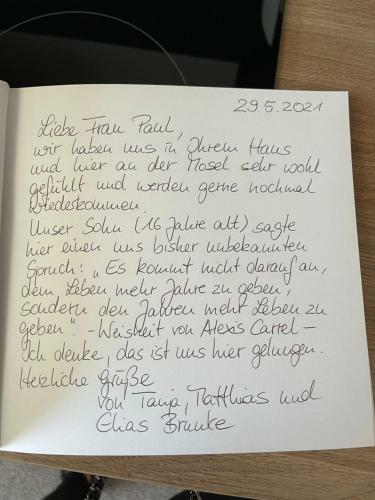 29.5.2021
Liebe Frau Paul,
wir haben uns in Ihrem Haus
und hier an der Mosel sehr wohl
gefühlt und werden gerne nochmal
wiederkommen.
Unser Sohn (16 Jahre alt) sagte
hier einen uns bisher unbekannten
Spruch: „Es kommt nicht darauf an,
dem Leben mehr Jahre zu geben,
sondern den Jahren mehr Leben zu
geben". - Weisheit von Alexis Carrel -
Ich denke, das ist uns hier gelungen.
Herzliche Grüße
von Tanja, Matthias und
Elias Brunke